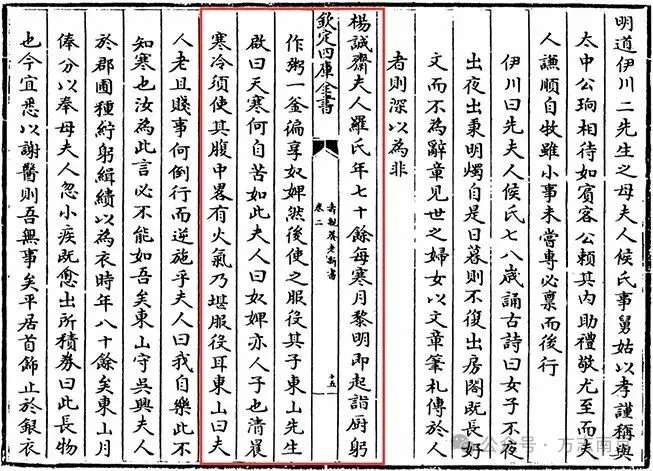 明道伊川二先生之母夫人侯氏事舅姑以孝謹稱與
太中公珦相待如賓客公賴其內助禮敬尤至而夫
人謙順自牧雖小事未嘗專必禀而後行
伊川曰先夫人侯氏七八歲誦古詩曰女子不夜
出夜出秉明燭自是日暮則不復出房閤既長好
文而不為辭章見世之婦女以文章筆札傳於人
者則深以為非
楊誠齋夫人羅氏年七十餘每寒月黎明即起詣厨躬
欽定四庫全書
壽親養老新書
卷二
十五
作粥一釜徧享奴婢然後使之服役其子東山先生
啟曰天寒何自苦如此夫人曰奴婢亦人子也清晨
寒冷須使其腹中畧有火氣乃堪服役耳東山曰夫
人老且賤事何倒行而逆施乎夫人曰我自樂此不
知寒也汝為此言必不能如吾矣東山守吳興夫人
於郡圃種紵躬緝績以為衣時年八十餘矣東山月
俸分以奉母夫人忽小疾既愈出所積劵曰此長物
也今宜悉以謝醫則吾無事矣平居首飾止於銀衣
公众号 · 万